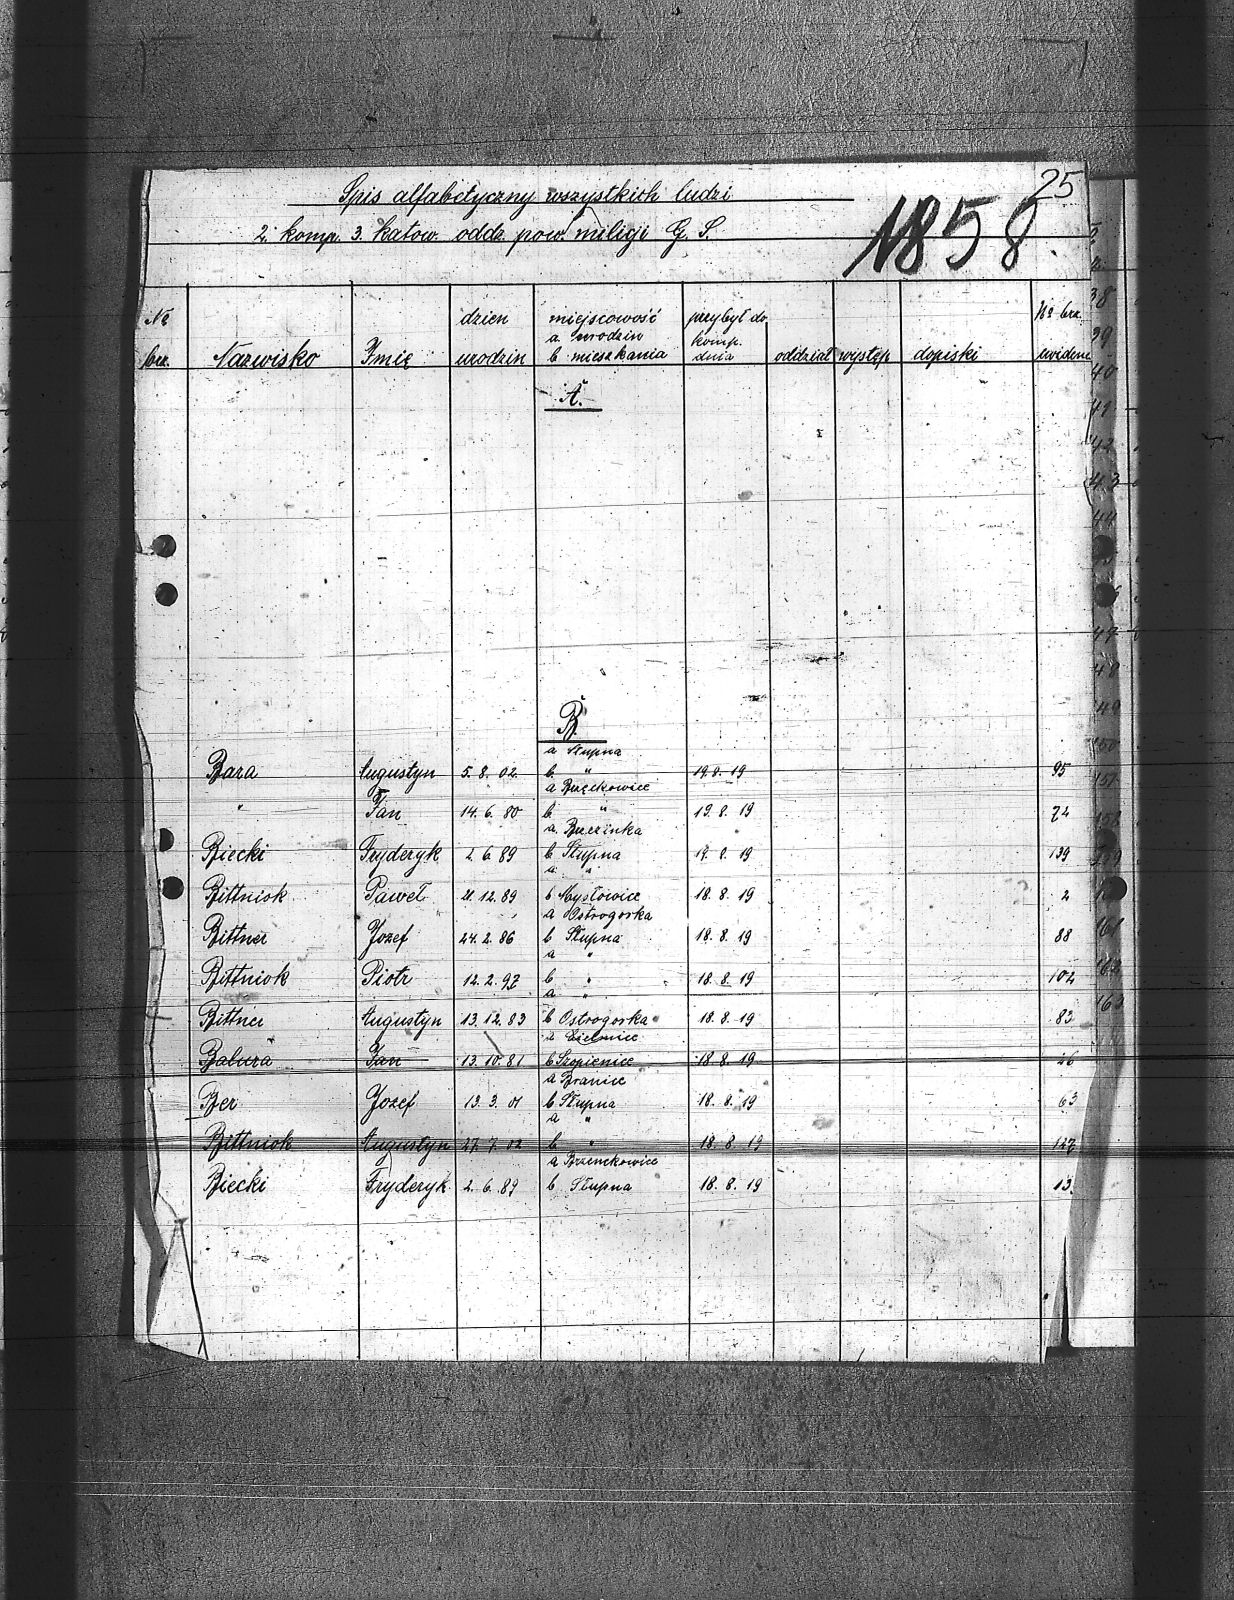 25
Spis alfabetyczny wszystkich ludzi
2. komp. 3. katow. oddz. pow. milicji G. S.
1858.
№ bız. Nazwisko Imię dzien urodzin miejscowość a. urodzin b. mieszkania przybył do komp. dnia oddział występ dopiski № bız. ewidenc
A.
B.
a Słupna
Bara Augustyn 5. 8. 02. b. " 19. 8. 19 95
a Brzęckowice
" Jan 14. 6. 80 b. " 19. 8. 19 72
a. Brzezinka
Biecki Fryderyk 2. 6. 89 b Słupna 19. 8. 19 139
a. "
Bittniok Paweł 21. 12. 89 b Mysłowice 18. 8. 19 2
a Ostrogorka
Bittner Jozef 24. 2. 86 b Słupna 18. 8. 19 88
a "
Bittniok Piotr 12. 2. 97 b " 18. 8. 19 102
a "
Bittner Augustyn 13. 12. 83 b Ostrogorka 18. 8. 19 83
a
Babura Jan 13. 10. 81 b Szopienice 18 8. 19 26
a Branice
Ber Jozef 13. 3. 01 b Słupna 18. 8. 19 63
a "
Bittniok Augustyn 27. 7. 02 b " 18. 8. 19 127
a Brzenckowice
Biecki Fryderyk 2. 6. 89 b Słupna 18. 8. 19 13.